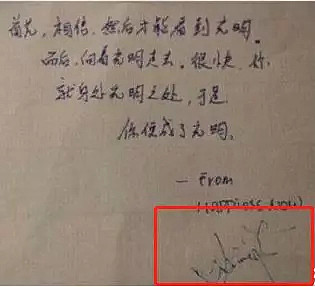 首先，相信，然后才能看到光明。
而后，向着光明走去。很快，你
就身处光明之处，于是
你便成了光明。
— From